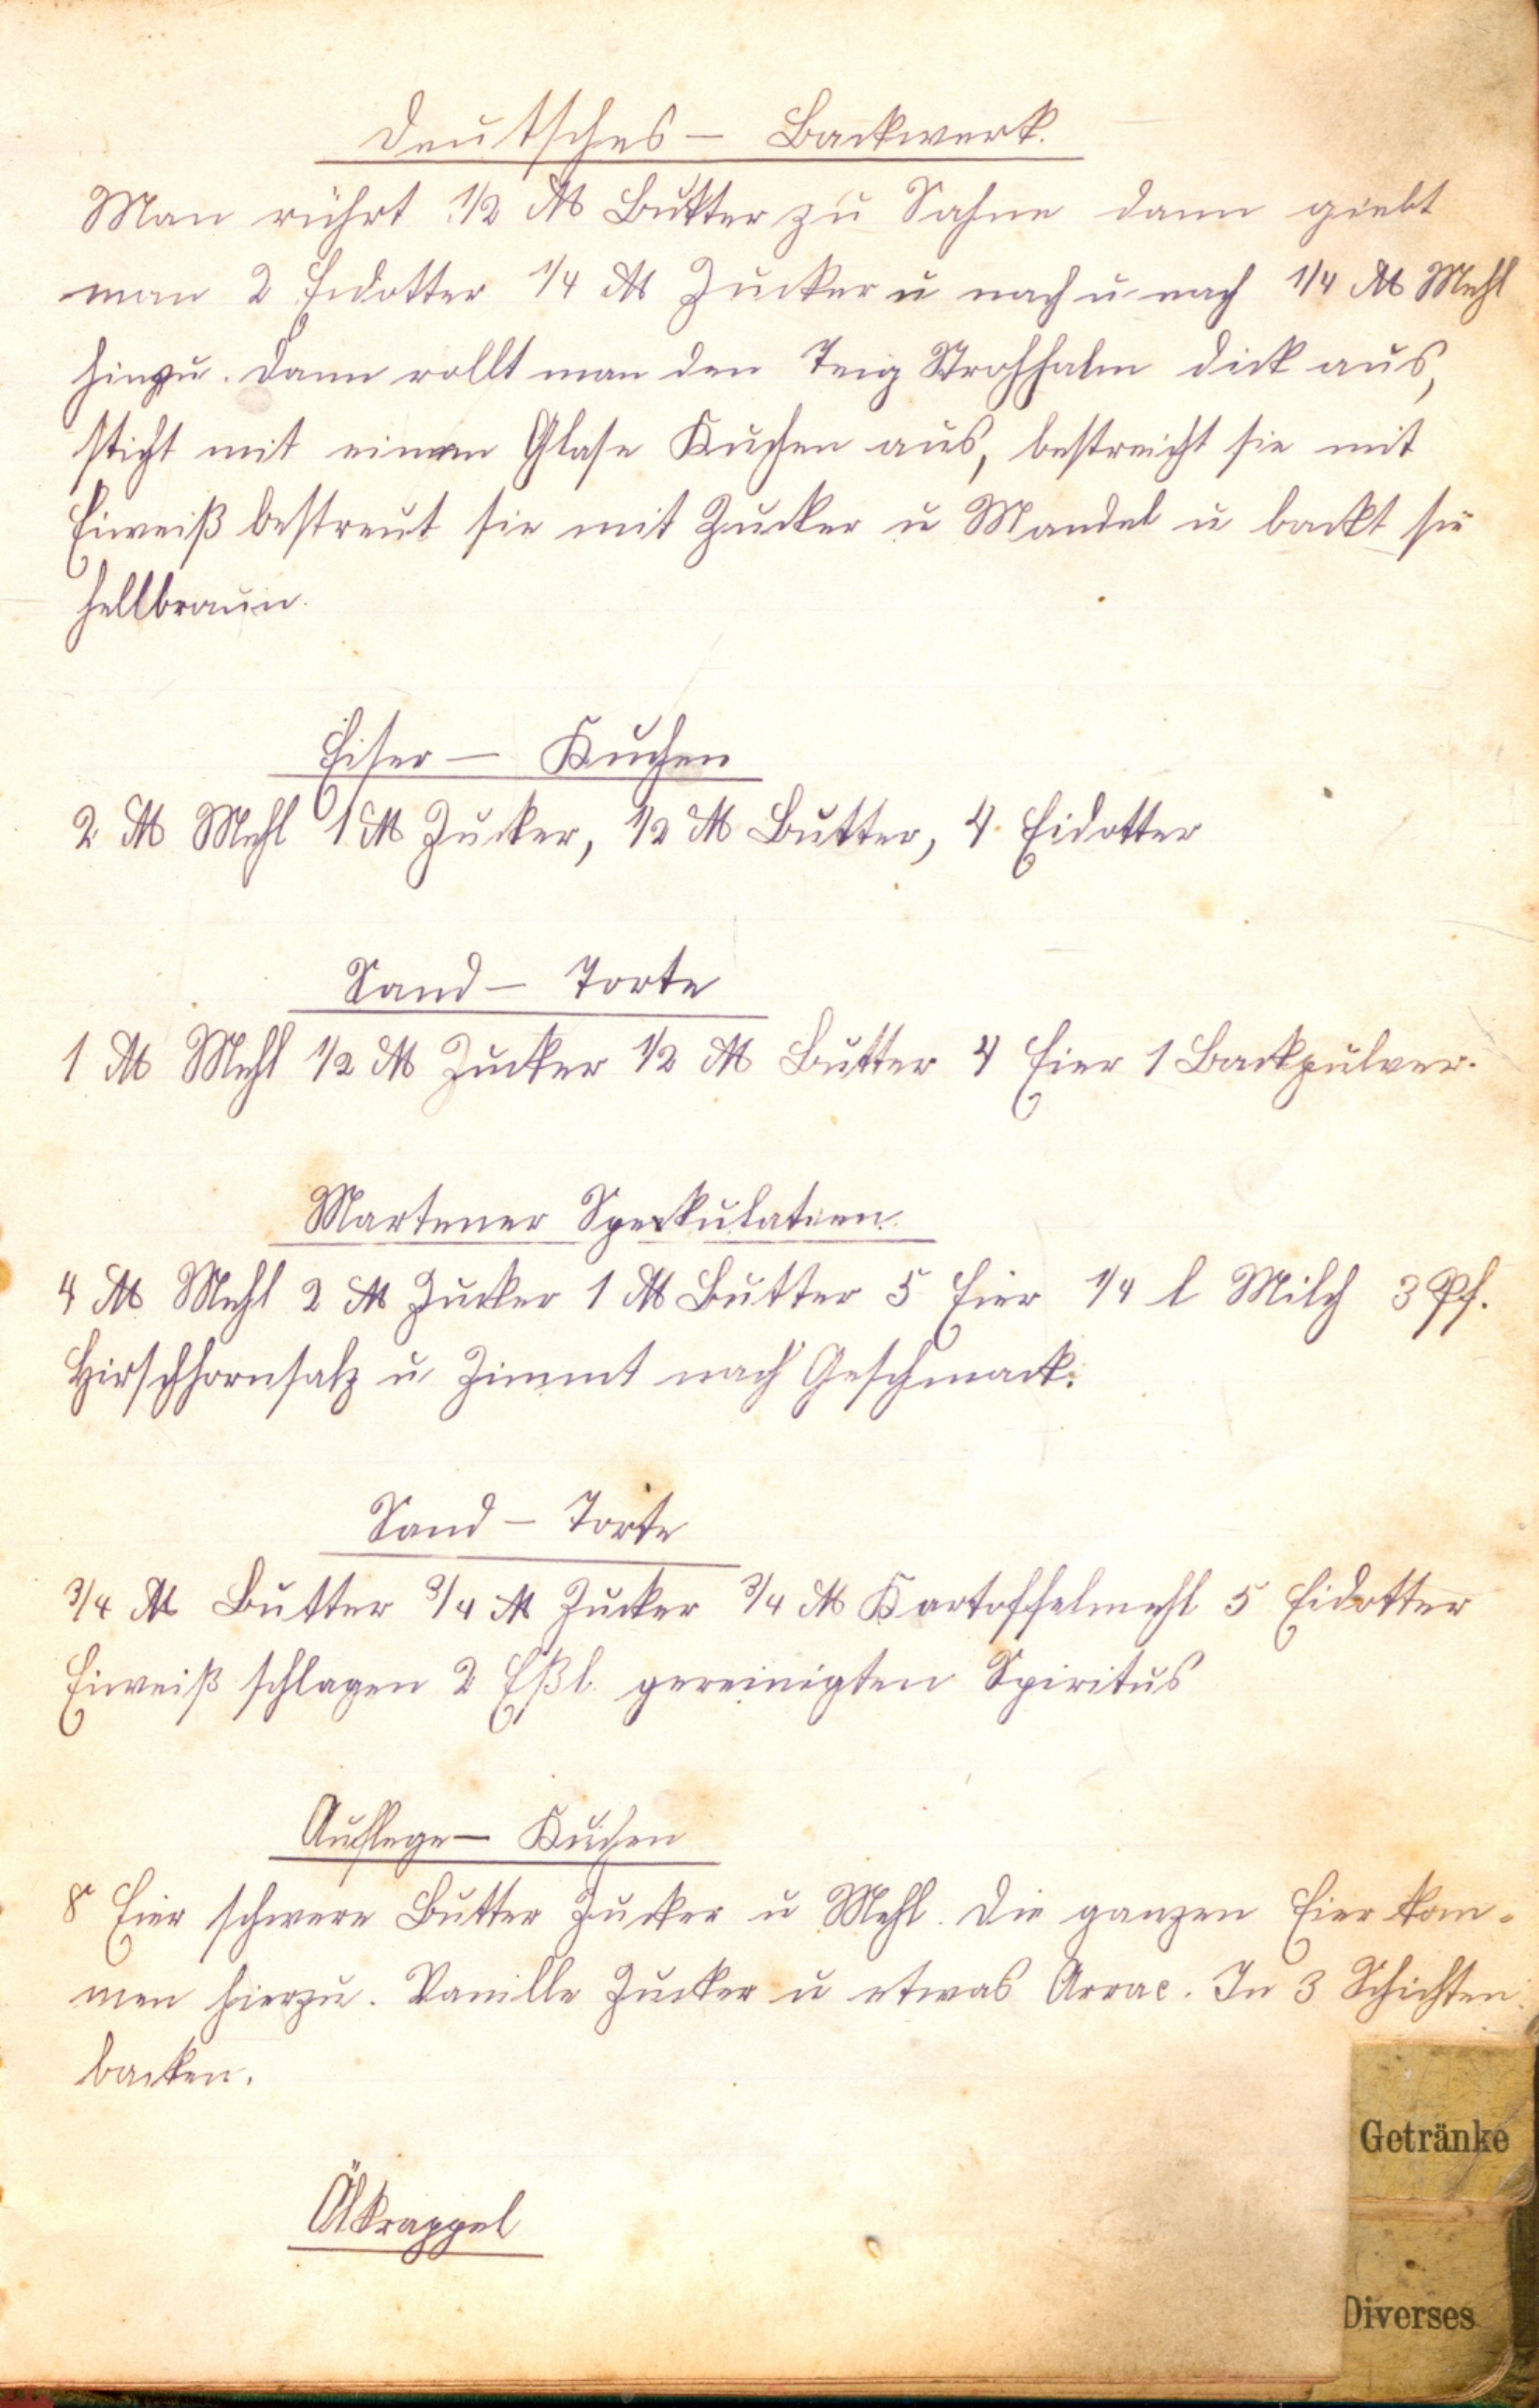 Deutsches – Backwerk.
Man rührt 1/2 ℔ Butter zu Sahne dann giebt
man 2 Eidotter 1/4 ℔ Zucker u nach u nach 1/4 ℔ Mehl
hinzu. Dann rollt man den Teig Strohhalm dick aus,
sticht mit einem Glase Kuchen aus, bestreicht sie mit
Eiweiß bestreut sie mit Zucker u Mandel u backt sie
hellbraun.
Eiser – Kuchen
2 ℔ Mehl 1 ℔ Zucker, 1/2 ℔ Butter, 4 Eidotter
Sand – Torte
1 ℔ Mehl 1/2 ℔ Zucker 1/2 ℔ Butter 4 Eier 1 Backpulver.
Martener Spekulatien.
4 ℔ Mehl 2 ℔ Zucker 1 ℔ Butter 5 Eier 1/4 l Milch 3 Pf.
Hirschhornsalz u Zimmt nach Geschmack.
Sand – Torte
3/4 ℔ Butter 3/4 ℔ Zucker 3/4 ℔ Kartoffelmehl 5 Eidotter
Eiweiß schlagen 2 Eßl. gereinigten Spiritus
Auflege – Kuchen
8 Eier schwere Butter Zucker u Mehl. Die ganzen Eier kom-
men hierzu. Vanille Zucker u etwas Arrac. In 3 Schichten
backen.
Getränke
Ölkrappel
Diverses